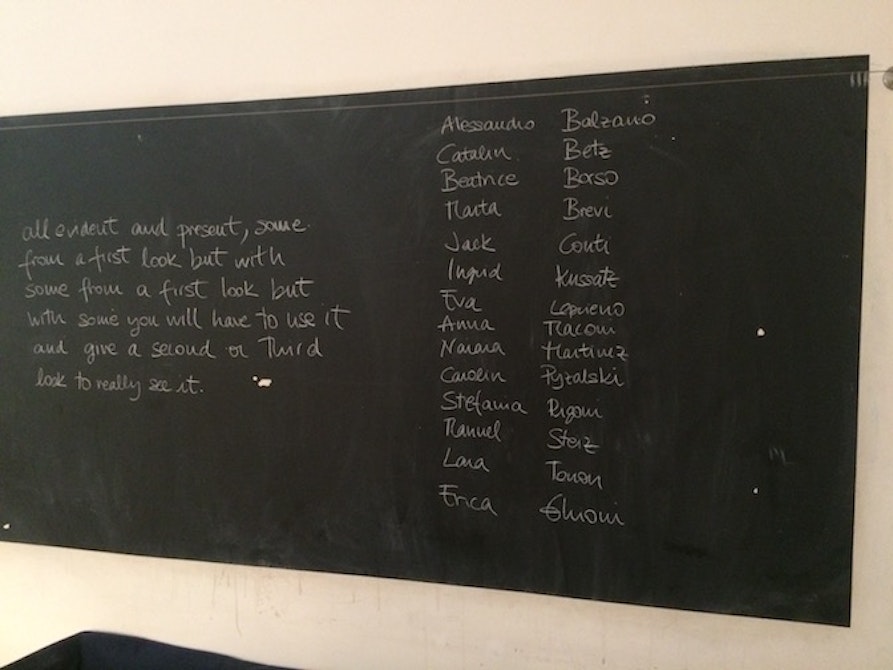 all evident and present, some
from a first look but with
some from a first look but
with some you will have to use it
and give a second or Third
look to really see it.
Alessandro Balzano
Catalin Betz
Beatrice Borso
Marta Brevi
Jack Conti
Ingrid Kussatz
Eva
Anna Maconi
Naiara Martinez
Carolin Pyzalski
Stefania Rigoni
Manuel Steiz
Lara Tonon
Erica